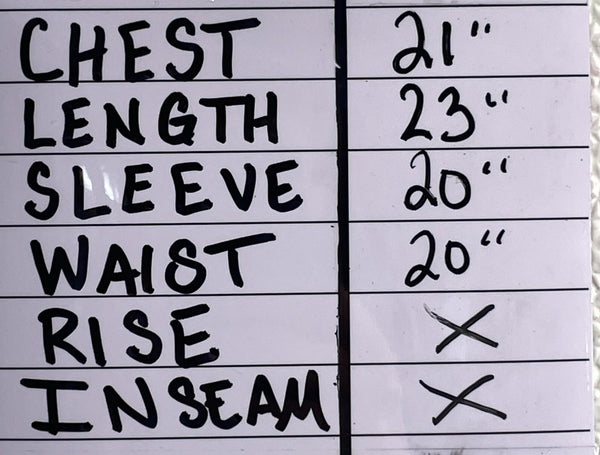 CHEST 21"
LENGTH 23"
SLEEVE 20"
WAIST 20"
RISE X
INSEAM X